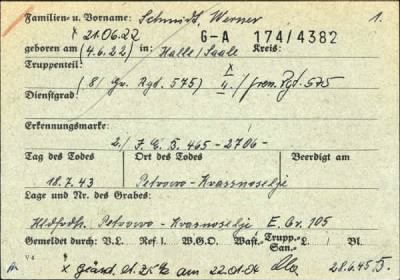 Familien- u. Vorname: Schmidt, Werner 1.
x 21.06.22 G-A 174/4382
geboren am (4.6.22) in: Halle/Saale Kreis:
Truppenteil: x
(8/ Gr. Rgd. 575) II./Gren. Rgt. 575
Dienstgrad:
Erkennungsmarke:
2./ J.E.B. 465 - 2706 -
Tag des Todes Ort des Todes Beerdigt am
18.7.43 Petrowo-Krassnoselje
Lage und Nr. des Grabes:
Hldfrdh. Petrowo-Krasnoselje E. Gr. 105
Gemeldet durch: V.L. Ref I. W.G.O. Wast- Trupp- L. Bl.
San.-
x geänd. am 22.01.04 28.6.45